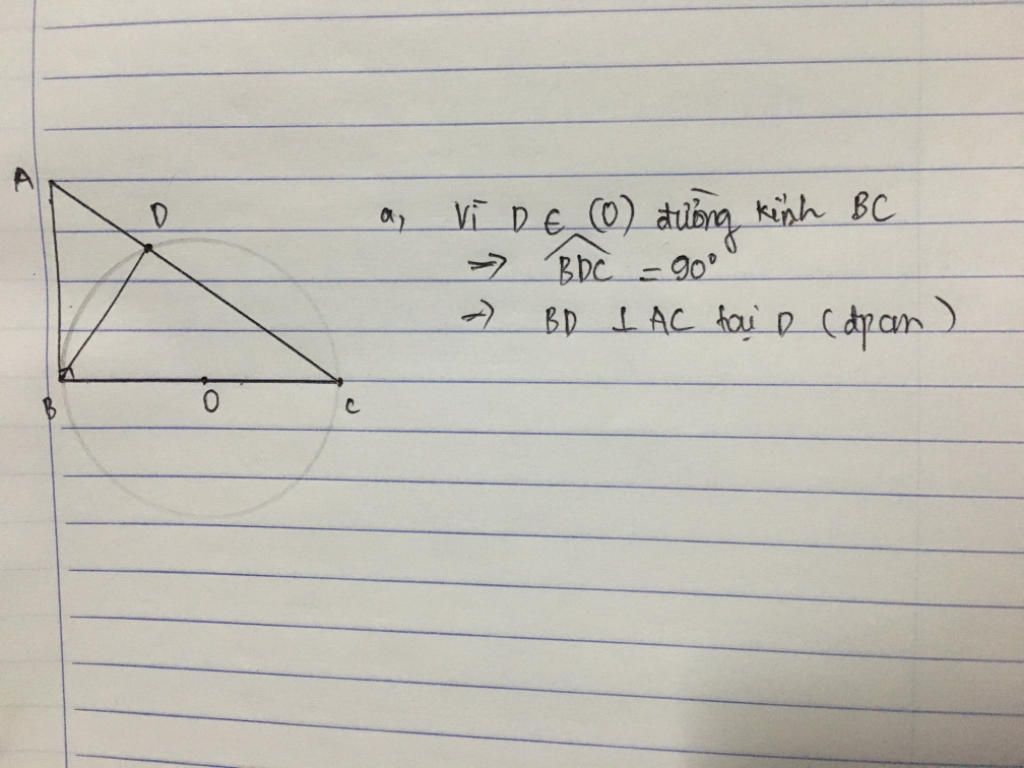 A
D
B
O
C
a, Vì D ∈ (O) đường kính BC
=> \widehat{BDC} = 90°
-> BD ⊥ AC tại D (đpcm)